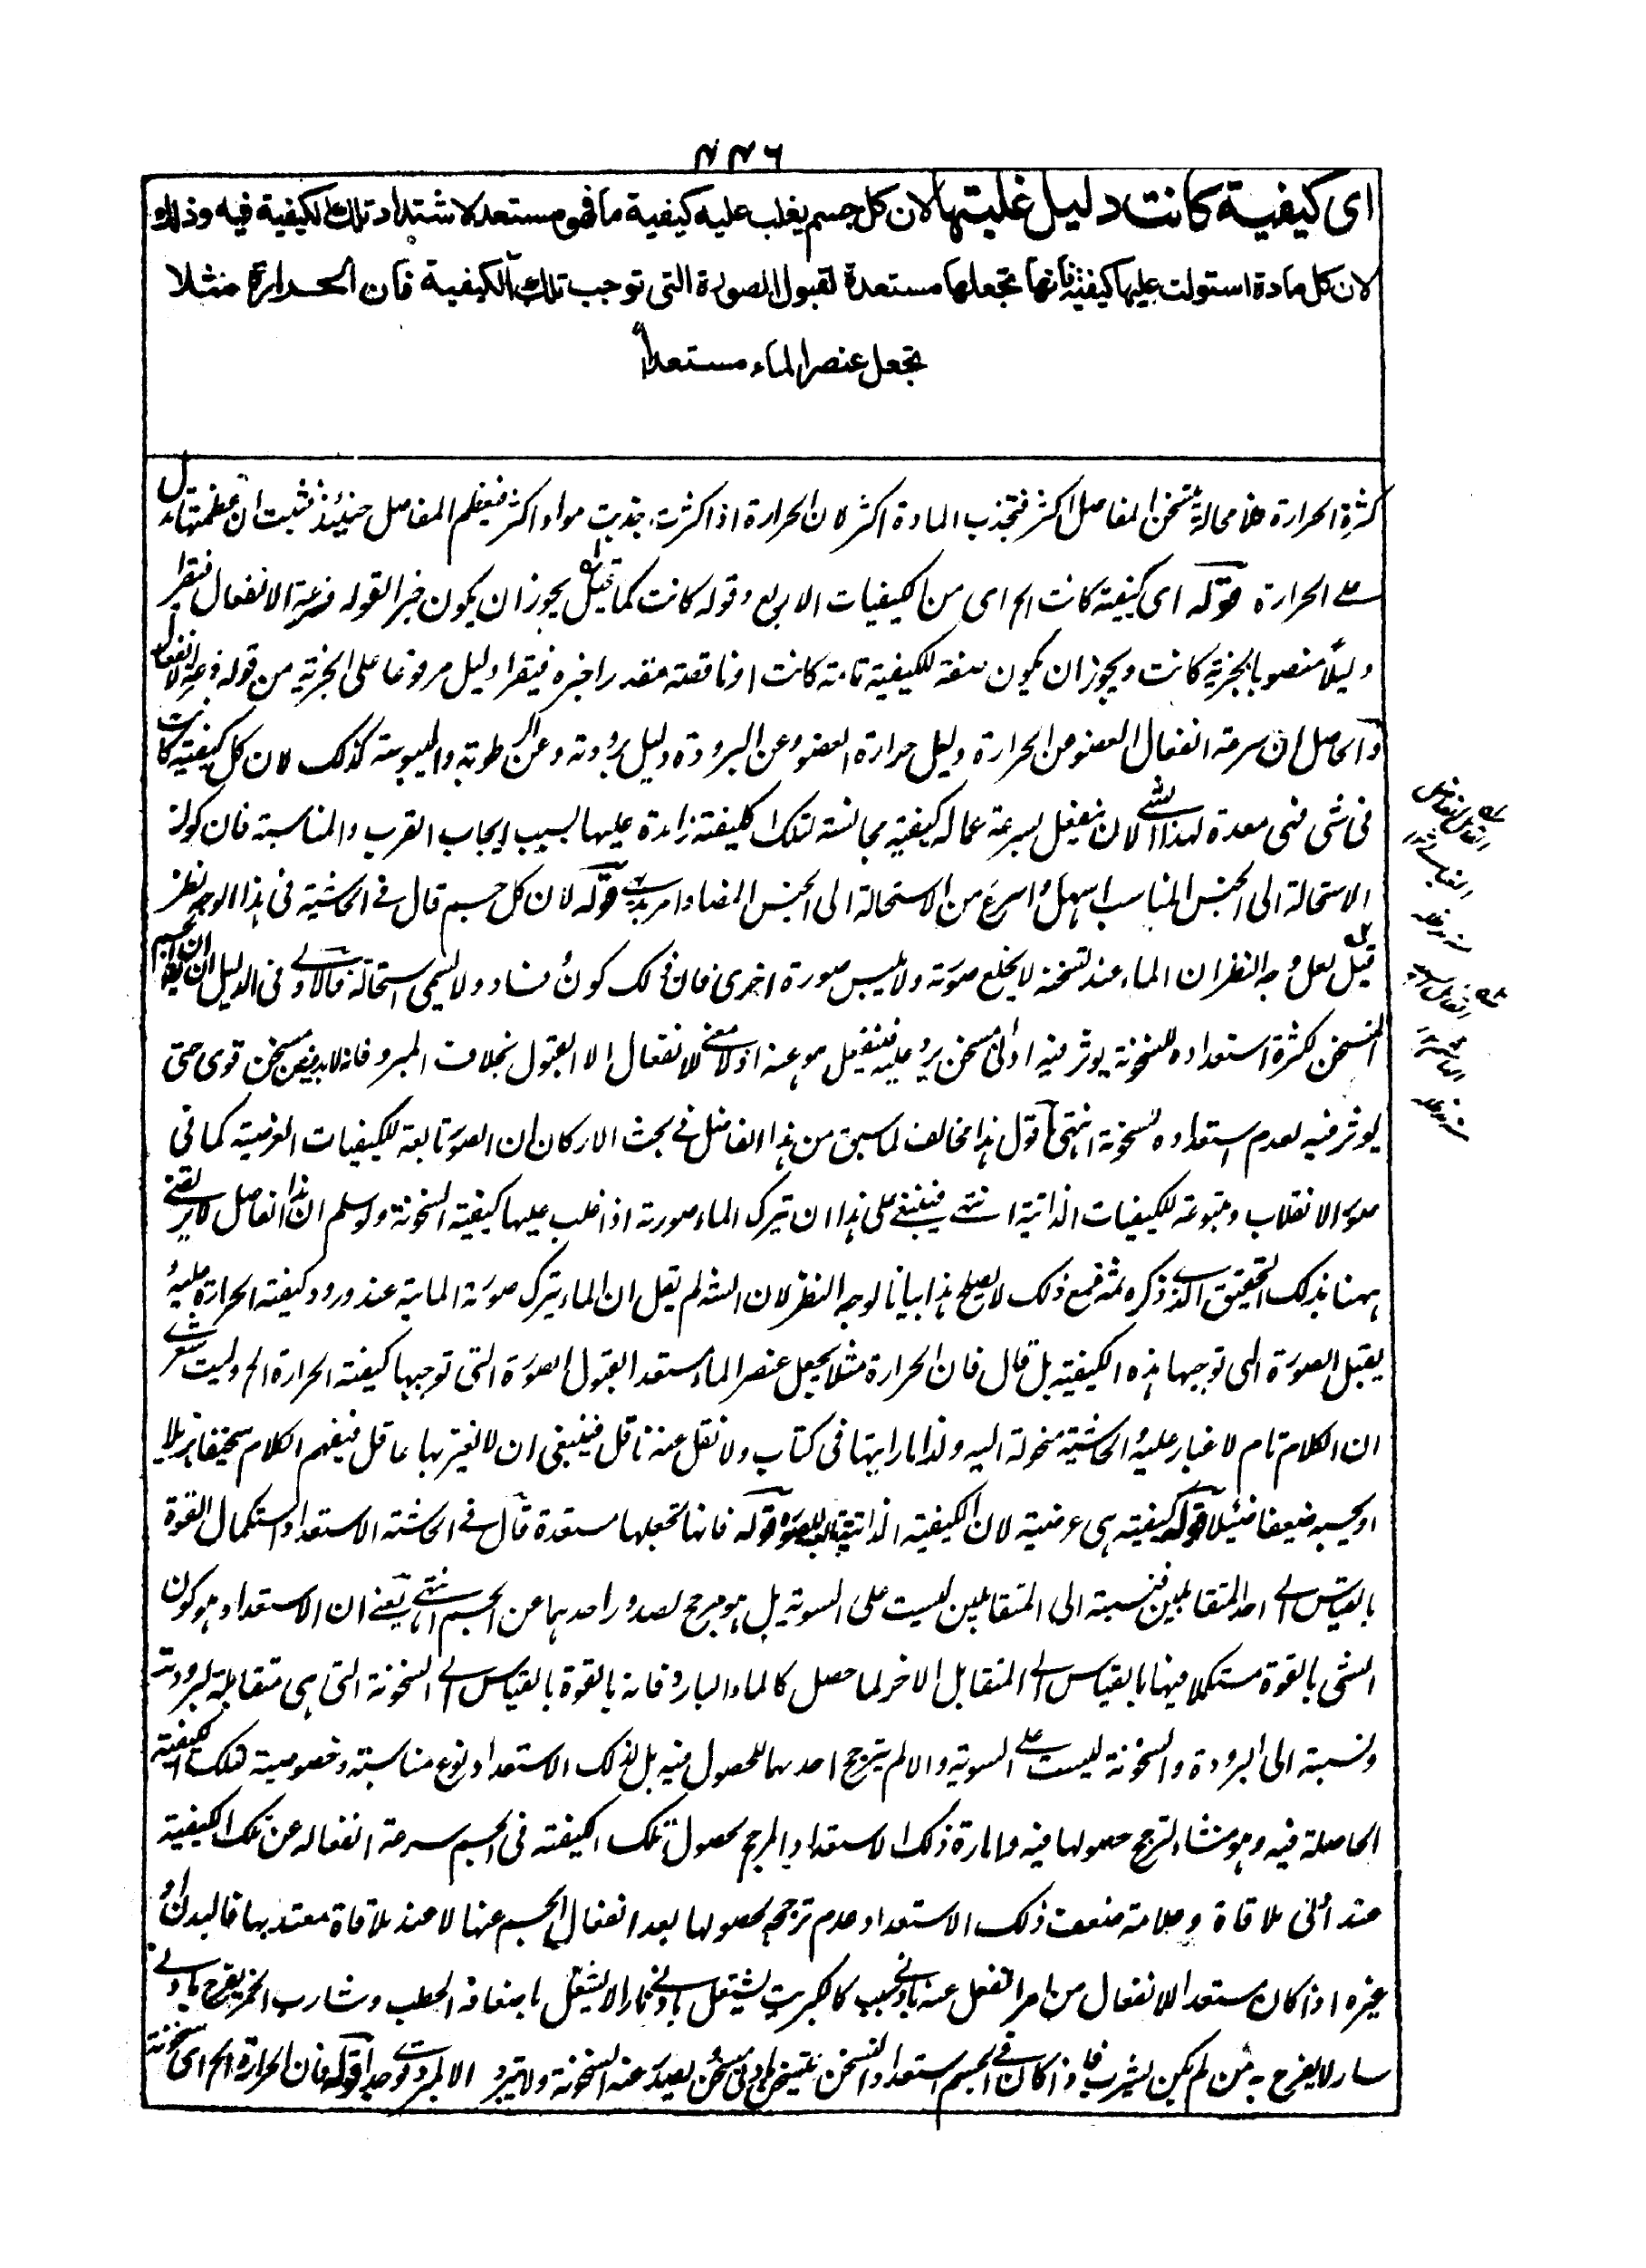 ٢٢٦
اى كيفية كانت دليل غلبتها لان كل جسم يغلب عليه كيفية ما فهو مستعد لاشتداد تلك الكيفية فيه وذلك
لان كل مادة استولت عليها كيفية فانها تجعلها مستعدة لقبول الصورة التى توجب تلك الكيفية فان الحرارة مثلا
تجعل عنصر الماء مستعدا
كثرة الحرارة فلا محالة يتسخن المفاصل اكثر فتجذب المادة اكثر لان الحرارة اذا كثرت جذبت مواد اكثر فيعظم المفاصل حينئذ فثبت ان عظمها تدل
على الحرارة قوله اى كيفية كانت الخ اى من الكيفيات الاربع وقوله كانت كما قيل يجوز ان يكون خبرا لقوله سرعة الانفعال فيقرا
دليلا منصوبا بخبرية كانت ويجوز ان يكون صفة للكيفية تامة كانت او ناقصة مقدرا خبره فيقرا دليل مرفوعا على الخبرية من قوله سرعة الانفعال
والحاصل ان سرعة انفعال العضو من الحرارة دليل حرارة العضو وعن البرودة دليل برودته وعن الرطوبة واليبوسة كذلك لان كل كيفية كانت
فى شى فهى معدة لهذا الشى لان ينفعل بسرعة عما له كيفية مجانسة لتلك الكيفية زائدة عليها بسبب ايجاب القرب والمناسبة فان كون
الاستحالة الى الجنس المناسب اسهل واسرع من الاستحالة الى الجنس المضاد امر قوله لان كل جسم قال فى الحاشية فى هذا الوجه نظر
قيل لعل وجه النظر ان الماء عند تسخنه لا يخلع صورته ولا يلبس صورة اخرى فان ذلك كون وفساد ولا يسمى استحالة فالاولى فى الدليل ان يقال ان الجسم
المتسخن لكثرة استعداده للسخونة يوثر فيه ادنى مسخن يرد عليه فينفعل هو عنه اذ لا معنى للانفعال الا القبول بخلاف المبرد فانه لا بد فيه من مسخن قوى حتى
يوثر فيه لعدم استعداده لسخونة انتهى اقول هذا مخالف لما سبق من هذا الفاضل فى بحث الاركان ان الصور تابعة للكيفيات العرضية كما فى
صور الانقلاب ومتبوعة للكيفيات الذاتية انتهى فينبغى على هذا ان يترك الماء صورته اذا غلب عليها كيفية السخونة ولو سلم ان هذا الفاضل لا يرتضى
ههنا بذلك التحقيق الذى ذكره ثمه فمع ذلك لا يصلح هذا بيانا لوجه النظر لان الشه لم يقل ان الماء يترك صورته المائية عند ورود كيفية الحرارة عليه و
يقبل الصورة التى توجبها هذه الكيفية بل قال فان الحرارة مثلا يجعل عنصر الماء مستعدا لقبول الصورة التى توجبها كيفية الحرارة الخ وليت شعرى
ان الكلام تام لا غبار عليه والحاشية منحولة اليه ولذا ما رايتها فى كتاب ولا نقل عنه ناقل فينبغى ان لا يغتر بها عاقل فيفهم الكلام سخيفا هزيلا
او يحسبه ضعيفا ضئيلا قوله كيفية هى عرضية لان الكيفية الذاتية تابعة للصورة قوله فانها تجعلها مستعدة قال فى الحاشية الاستعداد استكمال القوة
بالقياس الى احد المتقابلين فنسبته الى المتقابلين ليست على السوية بل هو مرجح لصدور احدهما عن الجسم انتهى يعنى ان الاستعداد هو كون
الشى بالقوة مستكملا فيها بالقياس الى المتقابل الاخر لما حصل كالماء البارد فانه بالقوة بالقياس الى السخونة التى هى متقابلة لبرودته
ونسبته الى البرودة والسخونة ليست على السوية والا لم يترجح احدهما للحصول فيه بل لذلك الاستعداد نوع مناسبة وخصوصية لتلك الكيفية
الحاصلة فيه وهو منشاء لترجح حصولها فيه وامارة ذلك الاستعداد المرجح لحصول تلك الكيفية فى الجسم سرعة انفعاله عن تلك الكيفية
عند ادنى ملاقاة وعلامة ضعف ذلك الاستعداد عدم ترجحه لحصولها بعد انفعال الجسم عنها لا عند ملاقاة معتد بها فالبدن او
غيره اذا كان مستعدا للانفعال من امر انفعل عنه بادنى سبب كالكبريت يشتعل بادنى نار لا يشتعل باضعافه الحطب وشارب الخمر يفرح بادنى
سار لا يفرح به من لم يكن يشرب فاذا كان فى الجسم استعداد التسخن يتسخن بادنى مسخن يصدر عنه السخونة ولا يتبرد الا لمبرد قوى جدا قوله فان الحرارة الخ اى سخونة